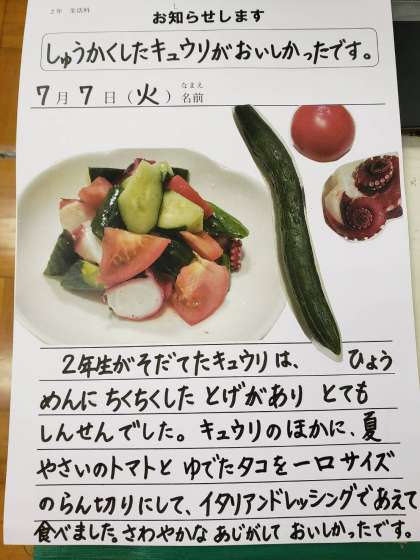 2年 生活科
お知らせします
しゅうかくしたキュウリがおいしかったです。
7月7日(火)名前
2年生がそだてたキュウリは、ひょう
めんにちくちくしたとげがあり とても
しんせんでした。キュウリのほかに、夏
やさいのトマトとゆでたタコを一口サイズ
のらん切りにして、イタリアンドレッシングであえて
食べました。さわやかなあじがしておいしかったです。